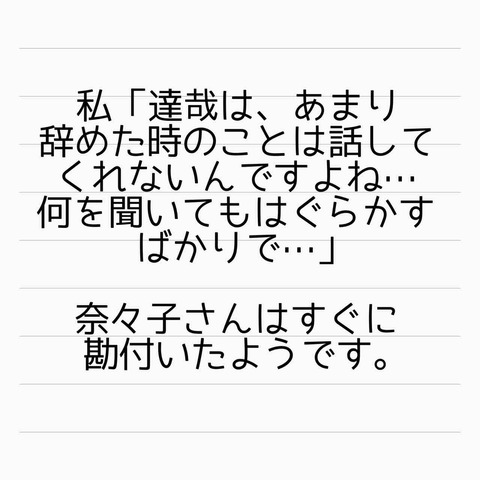 私「達哉は、あまり
辞めた時のことは話して
くれないんですよね…
何を聞いてもはぐらかす
ばかりで…」
奈々子さんはすぐに
勘付いたようです。